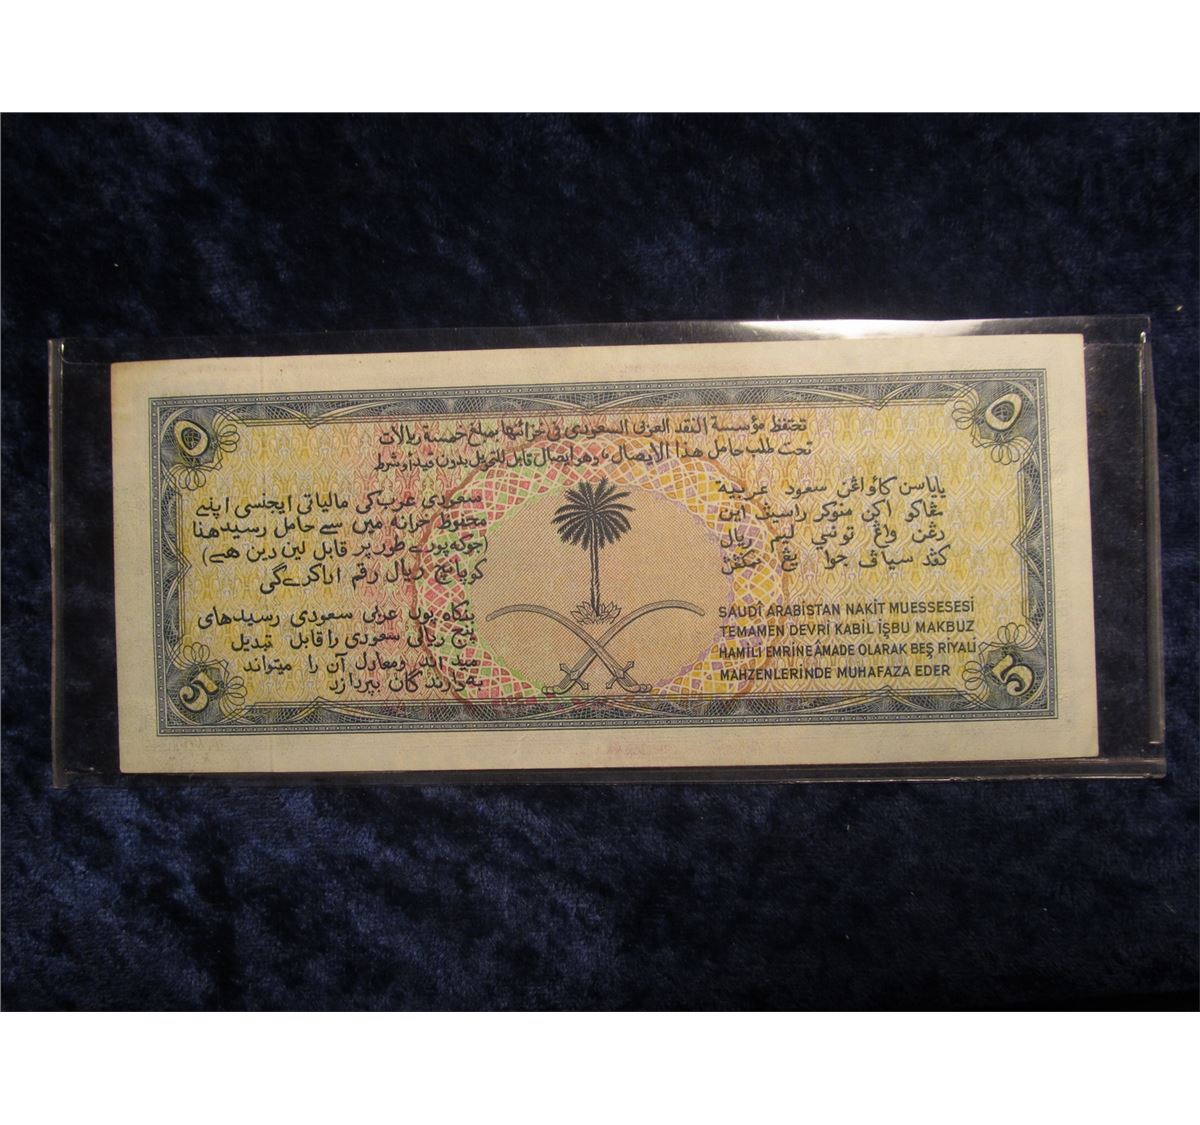 ٥
٥
تحتفظ مؤسسة النقد العربى السعودى فى خزائنها بمبلغ خمسة ريالات
تحت طلب حامل هذا الايصال، وهو ايصال قابل للتحويل بدون قيد أو شرط
ياياسن كاواڠن سعود عربية
دڠن واڠ توني ليم ريال
سعودی عرب کی مالیاتی ایجنسی اپنے
محفوظ خزانہ میں سے حامل رسید ھذا
(جوکہ پورے طور پر قابل لین دین ھے)
کو پانچ ریال رقم ادا کرے گی
بنگاه پول عربی سعودی رسیدهای
پنج ریالی سعودی را قابل تبدیل
میداند ومعادل آن را میتواند
به دارندگان بپردازد
SAUDÎ ARABİSTAN NAKİT MUESSESESİ
TEMAMEN DEVRİ KABİL İŞBU MAKBUZ
HAMİLİ EMRİNE ÂMADE OLARAK BEŞ RİYALİ
MAHZENLERİNDE MUHAFAZA EDER
5
5